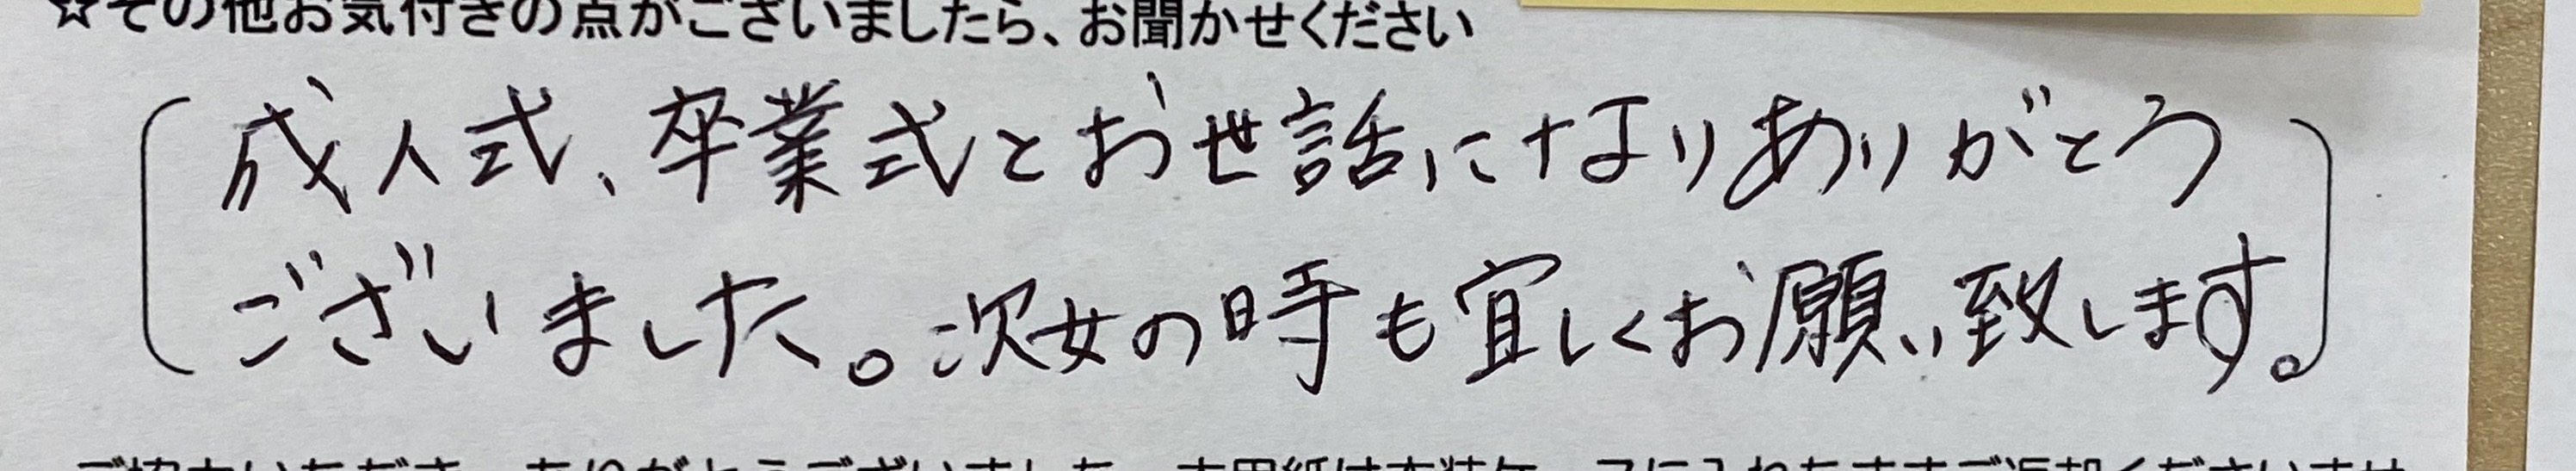 ☆その他お気付きの点がございましたら、お聞かせください
成人式、卒業式とお世話になりありがとう
ございました。次女の時も宜しくお願い致します。